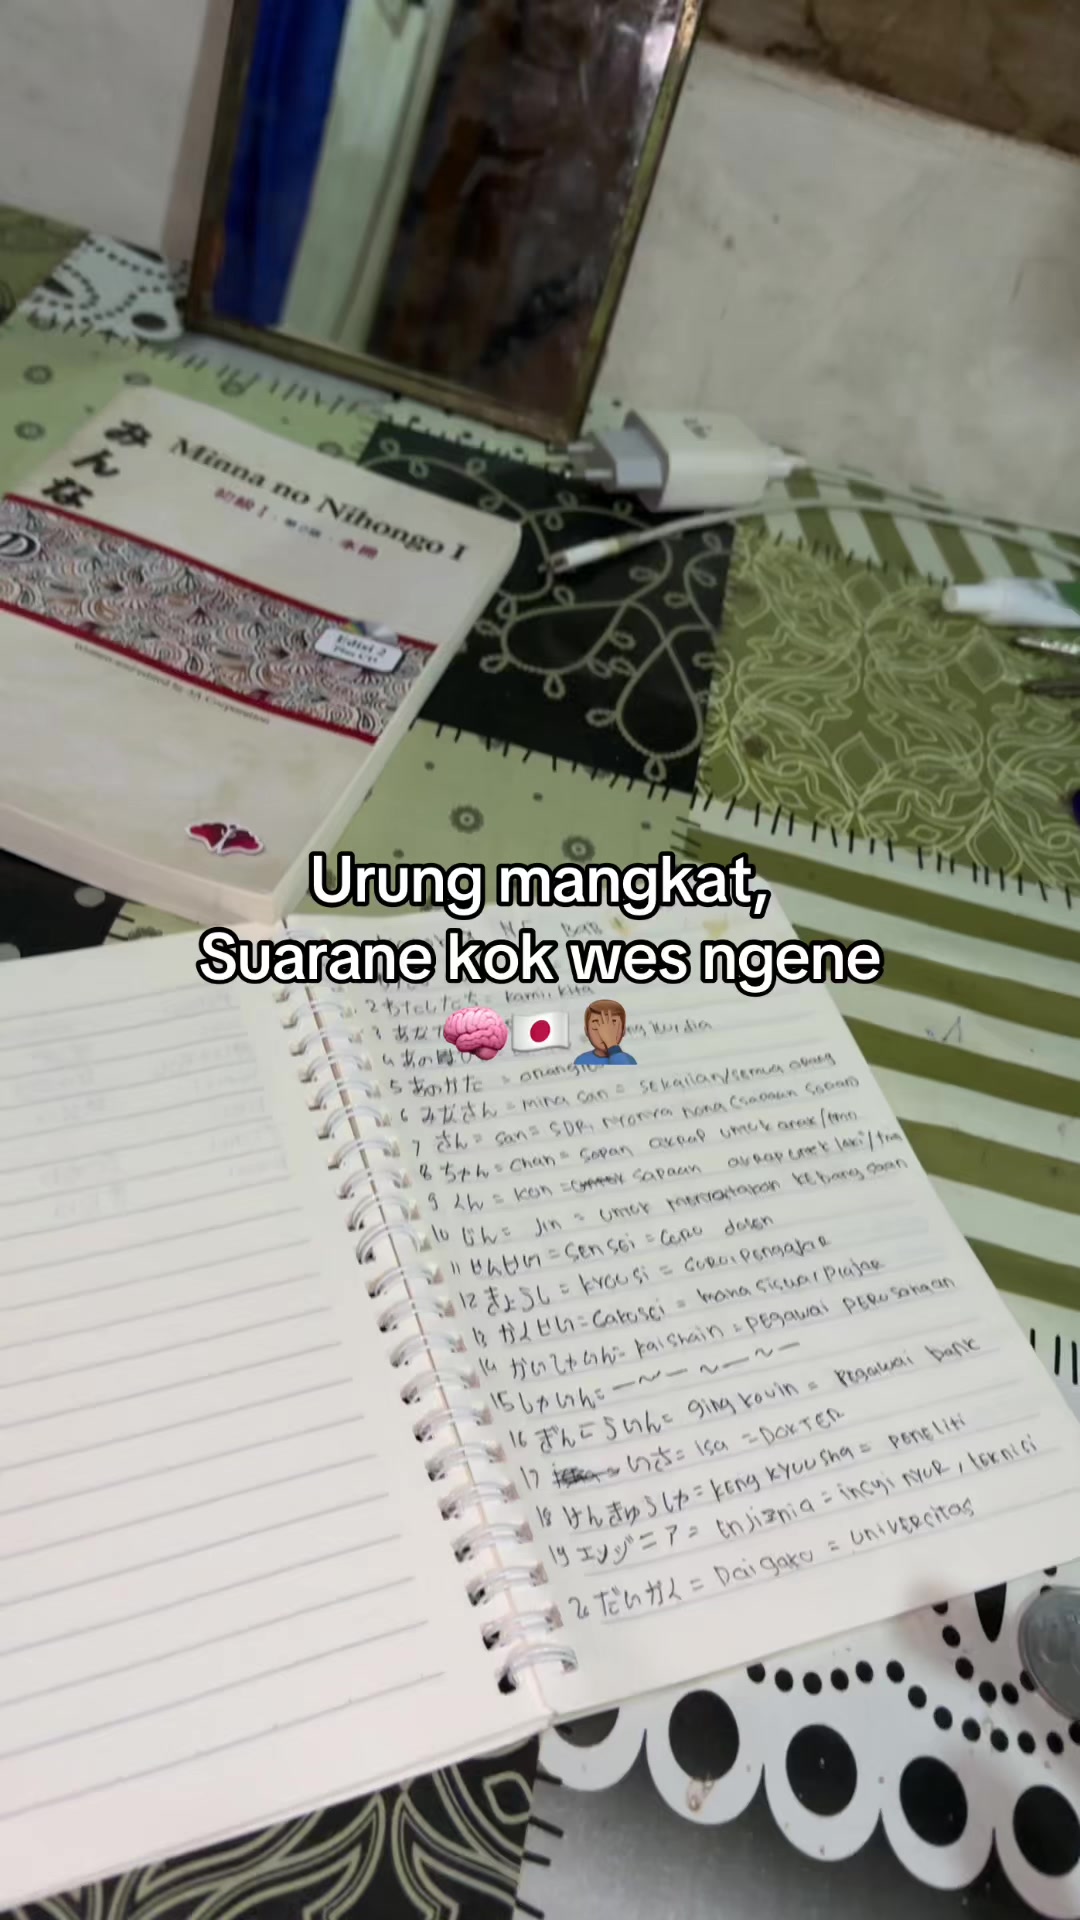 みんな
の
Minna no Nihongo I
初級 I ・ 第2版 ・ 本冊
Edisi 2
Plus CD
Written and edited by 3A Corporation
Urung mangkat,
Suarane kok wes ngene
🧠🇯🇵🤦🏽‍♂️
2 わたしたち = kami, kita
5 あのかた =
6 みなさん = mina san = sekalian/semua orang
7 さん = san = SDR, nyonya nona (sapaan sopan)
8 ちゃん = chan = sapan akrap untuk anak/
9 くん = kun = sapaan
10 じん = Jin = untuk menyatakan kebangsaan
11 せんせい = sensei = Guru dosen
12 きょうし = kyousi = Guru, Pengajar
13 がくせい = Gakusei = mahasiswa/Plajar
14 かいしゃいん = kaishain = pegawai perusahaan
15 しゃいん = —~—~—~—
16 ぎんこういん = gingkouin = pegawai bank
17 いさ = isa = DOKTER
18 けんきゅうしゃ = kengkyuusha = peneliti
19 エンジニア = enjinia = insyinyur, teknisi
20 だいがく = Daigaku = univercitas